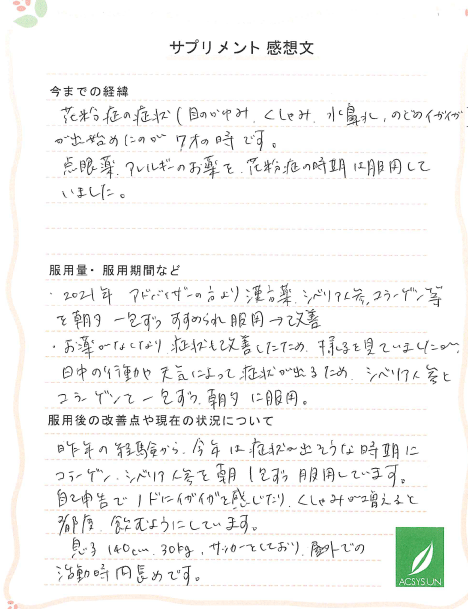 サプリメント 感想文
今までの経緯
花粉症の症状(目のかゆみ、くしゃみ、水鼻水、のどのイガイガ)
が出始めたのが 7才の時です。
点眼薬、アレルギーのお薬を、花粉症の時期は服用して
いました。
服用量・服用期間など
・2021年 アドバイザーの方より漢方薬、シベリア人参、コラーゲン等
を朝夕 一包ずつ すすめられ服用→改善
・お薬がなくなり、症状も改善したため、様子を見ていましたが、
日中の行動や天気によって症状が出るため、シベリア人参と
コラーゲンを一包ずつ、朝夕に服用。
服用後の改善点や現在の状況について
昨年の経験から、今年は症状が出そうな時期に
コラーゲン、シベリア人参を朝1包ずつ服用しています。
自己申告でノドにイガイガを感じたり、くしゃみが増えると
都度、飲むようにしています。
息子 140cm、30kg、サッカーをしており、屋外での
活動時間長めです。
ACSYSUN